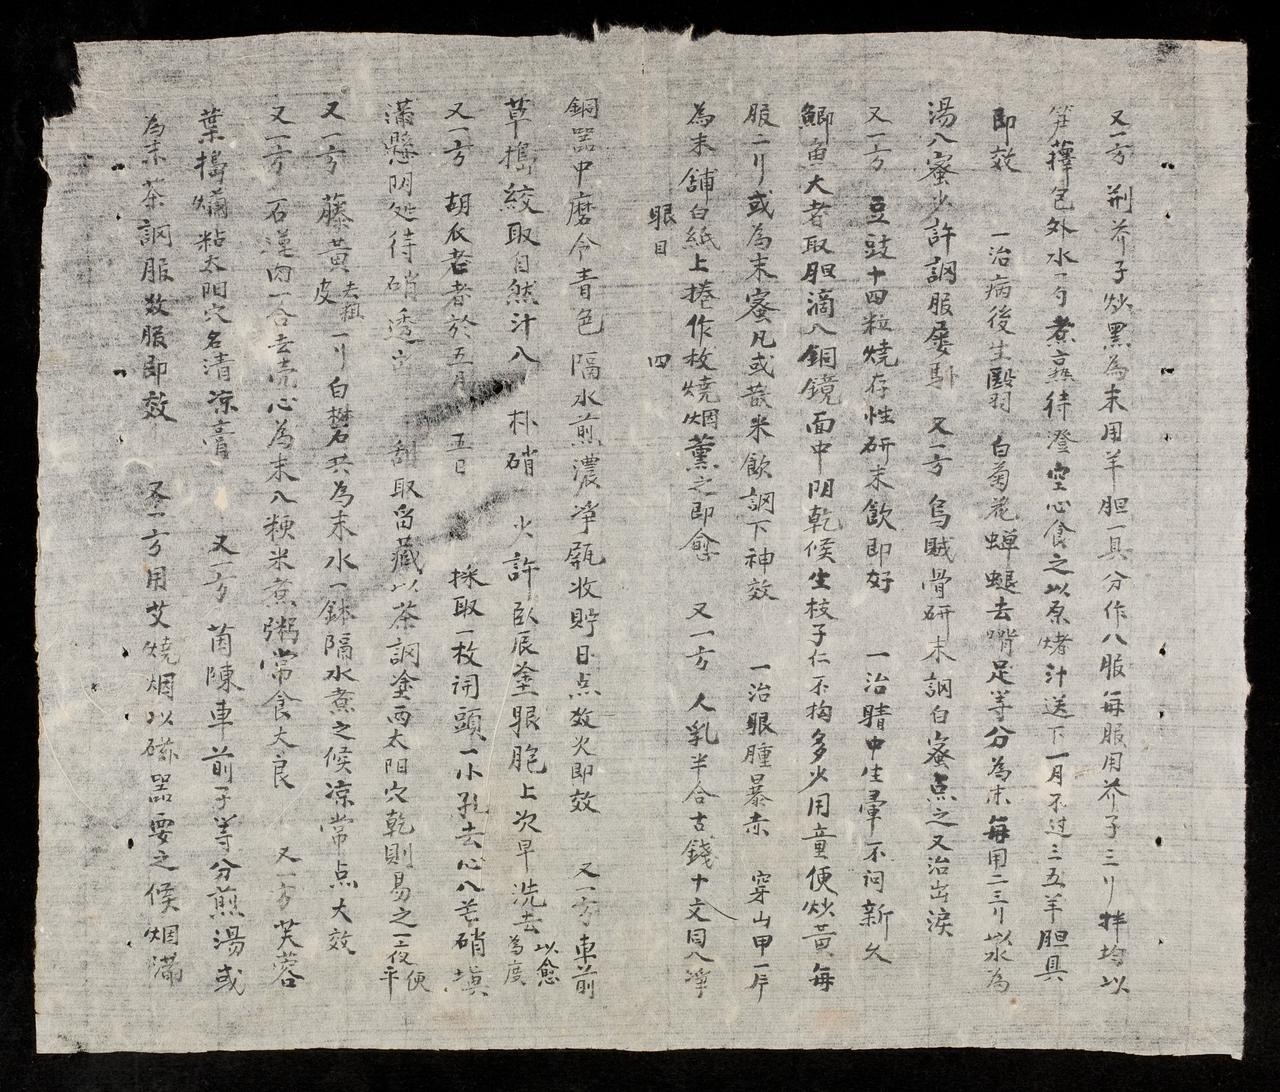 又一方 荆芥子炒黑為末用羊胆一具分作八服每服用芥子三刂拌均以
笋蘀包外水一勺煮熹待澄空心食之以原煑汁送下一月不过三五羊胆具
即效 一治病後生翳 白菊花蝉蜕去嘴足等分為末每用二三刂以水為
湯入蜜少許調服屡馿 又一方 烏賊骨研末調白蜜点之又治出淚
又一方 豆豉十四粒燒存性研末飲即好 一治睛中生暈不问新久
鯽魚大者取胆滴入銅鏡面中阴乾候生枝子仁不拘多少用童便炒黄每
服二刂或為末蜜凡或昔米飲調下神效 一治眼腫暴赤 穿山甲一片
為末鋪白紙上捲作枚燒烟薰之即愈 又一方 人乳半合古錢十文同入淨
眼目 四
銅器中磨令青色 隔水煎濃净瓶收貯日点数次即效 又一方車前
草搗絞取自然汁入 朴硝 火許卧辰塗眼胞上次早洗去以愈為度
又一方 胡瓜老者於五月 五日 採取一枚闬頭一小孔去心入芒硝填
滿懸阴处待硝透出 刮取畄藏以茶調塗两太阳穴乾則易之一夜便平
又一方 藤黄去粗皮一刂白礬石共為末水一鉢隔水煮之候凉常点大效
又一方 石蓮肉一合去壳心為末入粳米煮粥常食大良 又一方 芙蓉
葉搗爛粘太阳穴名清凉膏 又一方 茵陳車前子等分煎湯或
為末茶調服数服即效 又一方用艾燒烟以磁器覆之候烟滿